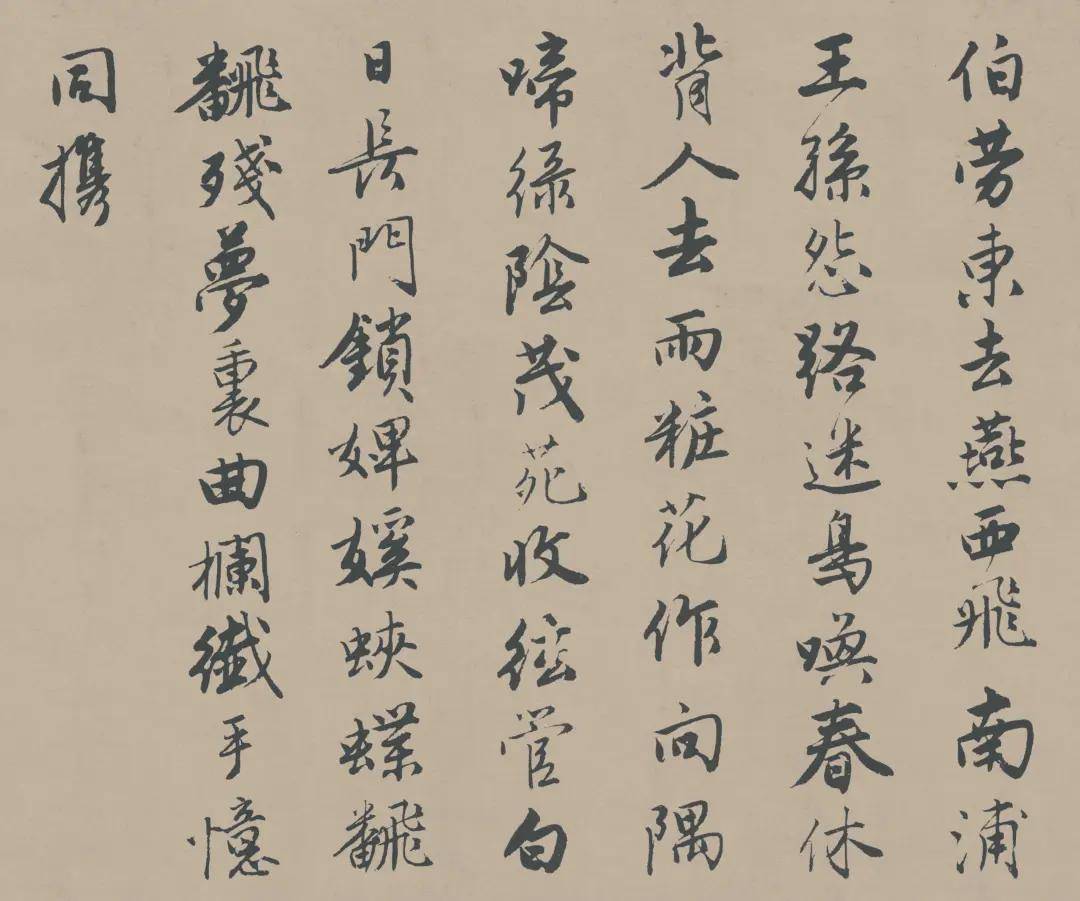 伯勞東去燕西飛南浦
王孫怨路迷鳥喚春休
背人去雨粧花作向隅
啼緑陰茂苑收絃管白
日長門鎖婢㜎蛺蝶飜
飜殘夢裏曲欄纖手憶
同携